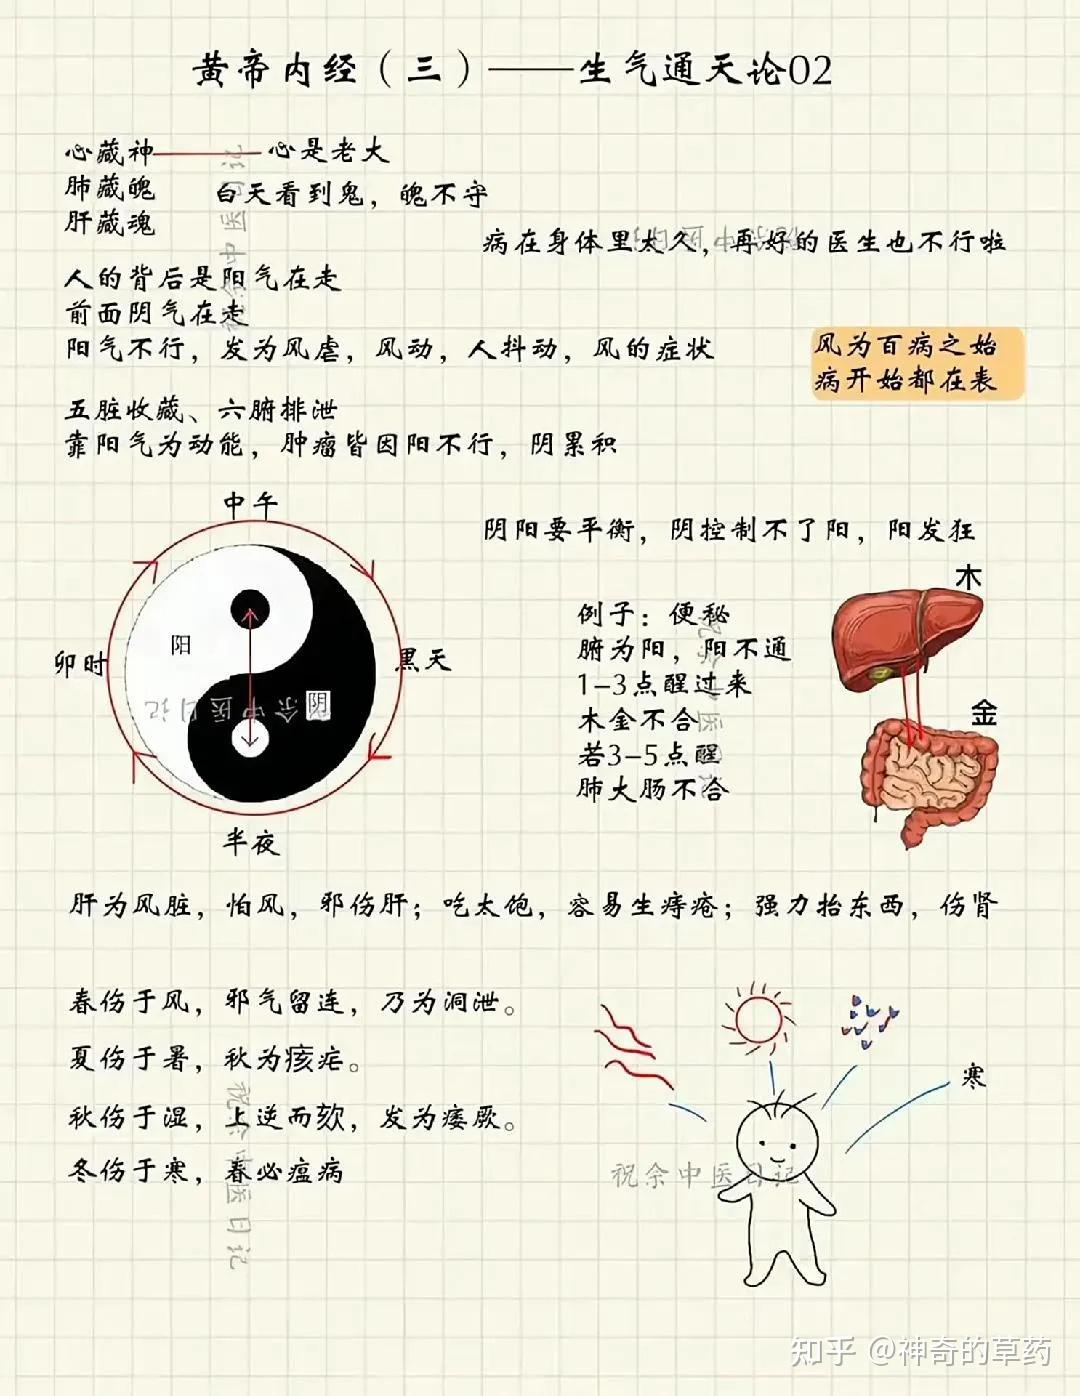 黄帝内经（三）——生气通天论02
心藏神——心是老大
肺藏魄 白天看到鬼，魄不守
肝藏魂
病在身体里太久，再好的医生也不行啦
人的背后是阳气在走
前面阴气在走
阳气不行，发为风虐，风动，人抖动，风的症状
风为百病之始
病开始都在表
五脏收藏、六腑排泄
靠阳气为动能，肿瘤皆因阳不行，阴累积
中午
阳
卯时
黑天
阴
半夜
阴阳要平衡，阴控制不了阳，阳发狂
例子：便秘
腑为阳，阳不通
1-3点醒过来
木金不合
若3-5点醒
肺大肠不合
木
金
肝为风脏，怕风，邪伤肝；吃太饱，容易生痔疮；强力抬东西，伤肾
春伤于风，邪气留连，乃为洞泄。
夏伤于暑，秋为痎疟。
秋伤于湿，上逆而欬，发为痿厥。
冬伤于寒，春必瘟病
寒
祝余中医日记
祝余中医日记
祝余中医日记
祝余中医日记
知乎 @神奇的草药